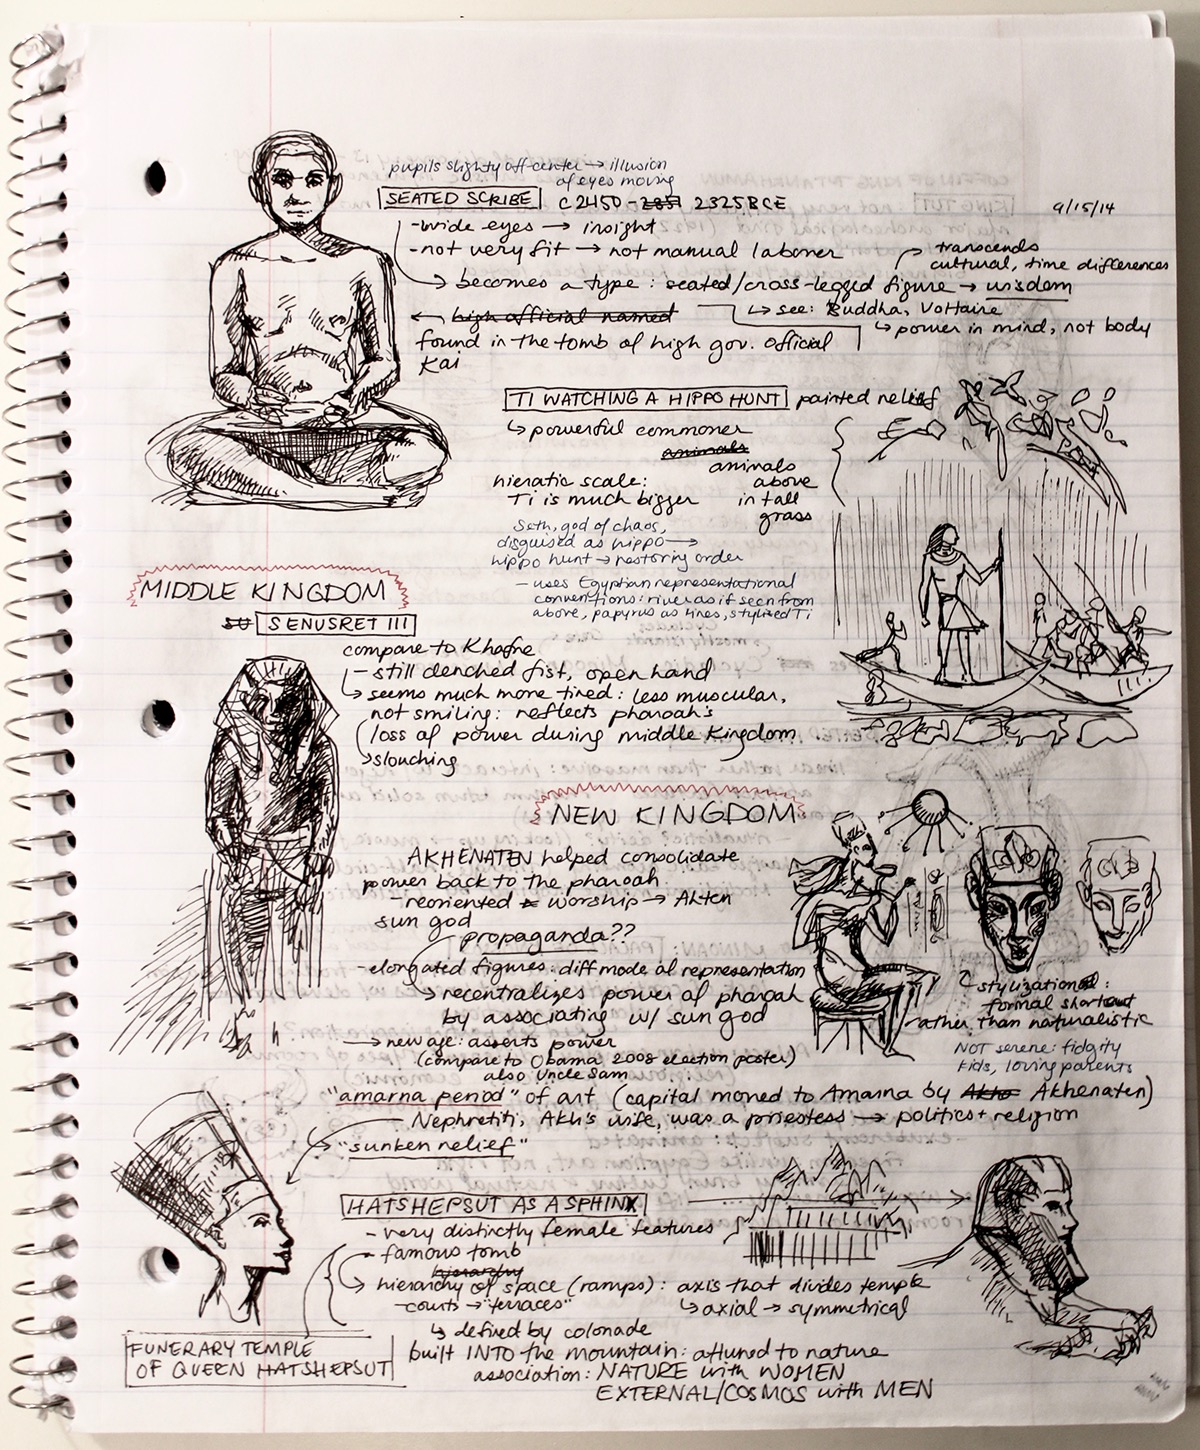 pupils slighty off-center → illusion
of eyes moving
SEATED SCRIBE c 2450 - 2325 BCE
9/15/14
- wide eyes → insight
- not very fit → not manual laborer
transcends
cultural, time differences
→ becomes a type: seated/cross-legged figure → wisdom
← high official named
↳ see: Buddha, Voltaire
↳ power in mind, not body
found in the tomb of high gov. official
Kai
TI WATCHING A HIPPO HUNT painted relief
↳ powerful commoner
animals
animals
above
in tall
grass
hieratic scale:
Ti is much bigger
Seth, god of chaos,
disguised as hippo →
hippo hunt → restoring order
- uses Egyptian representational
conventions: river as if seen from
above, papyrus as lines, stylized Ti
MIDDLE KINGDOM
SENUSRET III
compare to Khafre
- still clenched fist, open hand
↳ seems much more tired: less muscular,
not smiling: reflects pharoah's
loss of power during middle Kingdom
↳ slouching
NEW KINGDOM
AKHENATEN helped consolidate
power back to the pharoah
- reoriented worship → Akten
sun god
propaganda??
- elongated figures: diff mode of representation
→ recentralizes power of pharoah
by associating w/ sun god
→ new age: asserts power
(compare to Obama 2008 election poster)
also Uncle Sam
stylization:
formal shortcut
rather than naturalistic
NOT serene: fidgity
kids, loving parents
"amarna period" of art (capital moved to Amarna by Akhe Akhenaten)
Nephretiti, Akh's wife, was a priestess → politics + religion
"sunken relief"
HATSHEPSUT AS A SPHINX
- very distinctly female features
- famous tomb
hierarchy
↳ hierarchy of space (ramps): axis that divides temple
↳ axial → symmetrical
- courts → "terraces"
↳ defined by colonade
FUNERARY TEMPLE
OF QUEEN HATSHEPSUT
built INTO the mountain: attuned to nature
association: NATURE with WOMEN
EXTERNAL/COSMOS with MEN